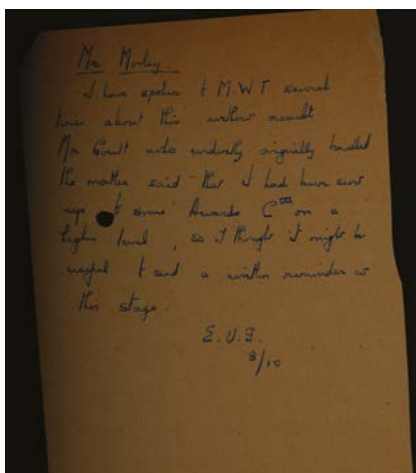 Mr Morley.
I have spoken to M.W.T several
times about this without result.
Mr Groutt who evidently originally handled
the matter said that it had been sent
up to some Awards Cttee on a
higher level, so I thought it might be
useful to send a written reminder at
this stage.
E.U.G.
8/10